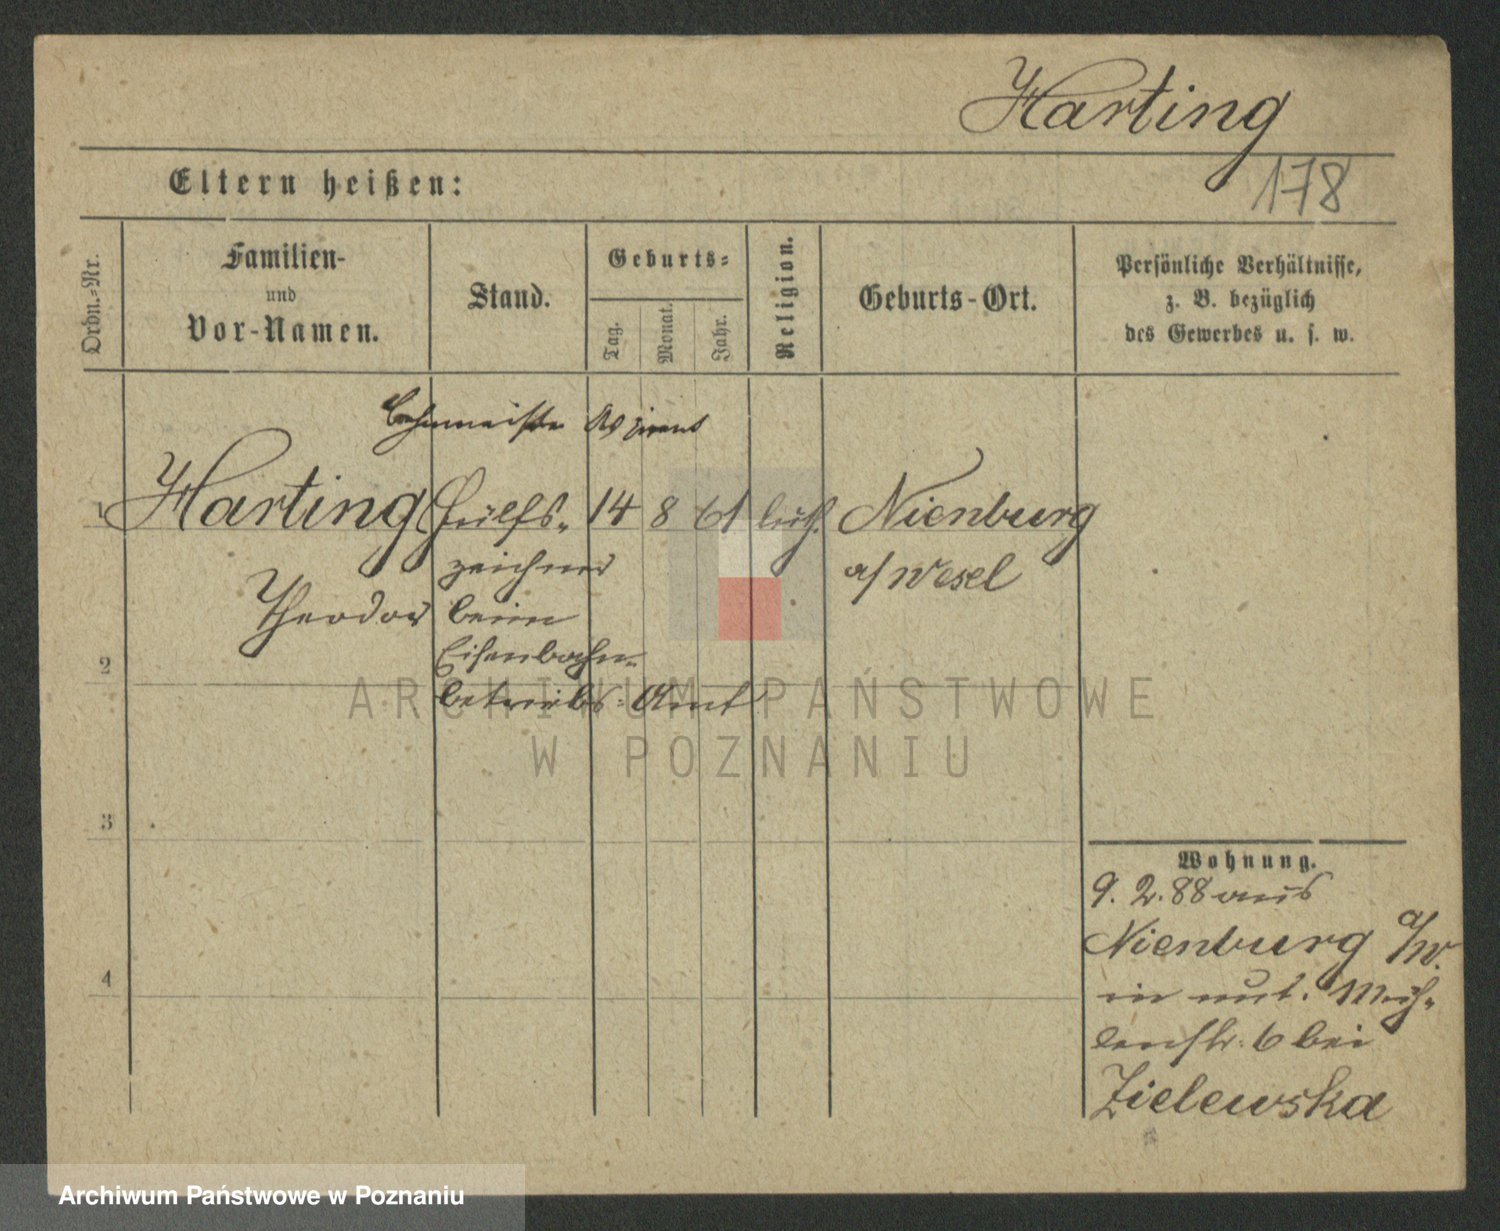 Harting
178
Eltern heißen:
Ordn.-Nr.
Familien-
und
Vor-Namen.
Stand.
Geburts-
Tag.
Monat.
Jahr.
Religion.
Geburts-Ort.
Persönliche Verhältnisse,
z. B. bezüglich
des Gewerbes u. s. w.
Bahnmeister Aspirant
1 Harting Hülfs- 14 8 61 luth. Nienburg
zeichner a/Wesel
Theodor beim
2 Eisenbahn-
betriebs-Amt
3
4
Wohnung.
9. 2. 88 aus
Nienburg a/W.
Müh-
lenstr. 6 bei
Zielewska
ARCHIWUM PAŃSTWOWE
W POZNANIU
Archiwum Państwowe w Poznaniu